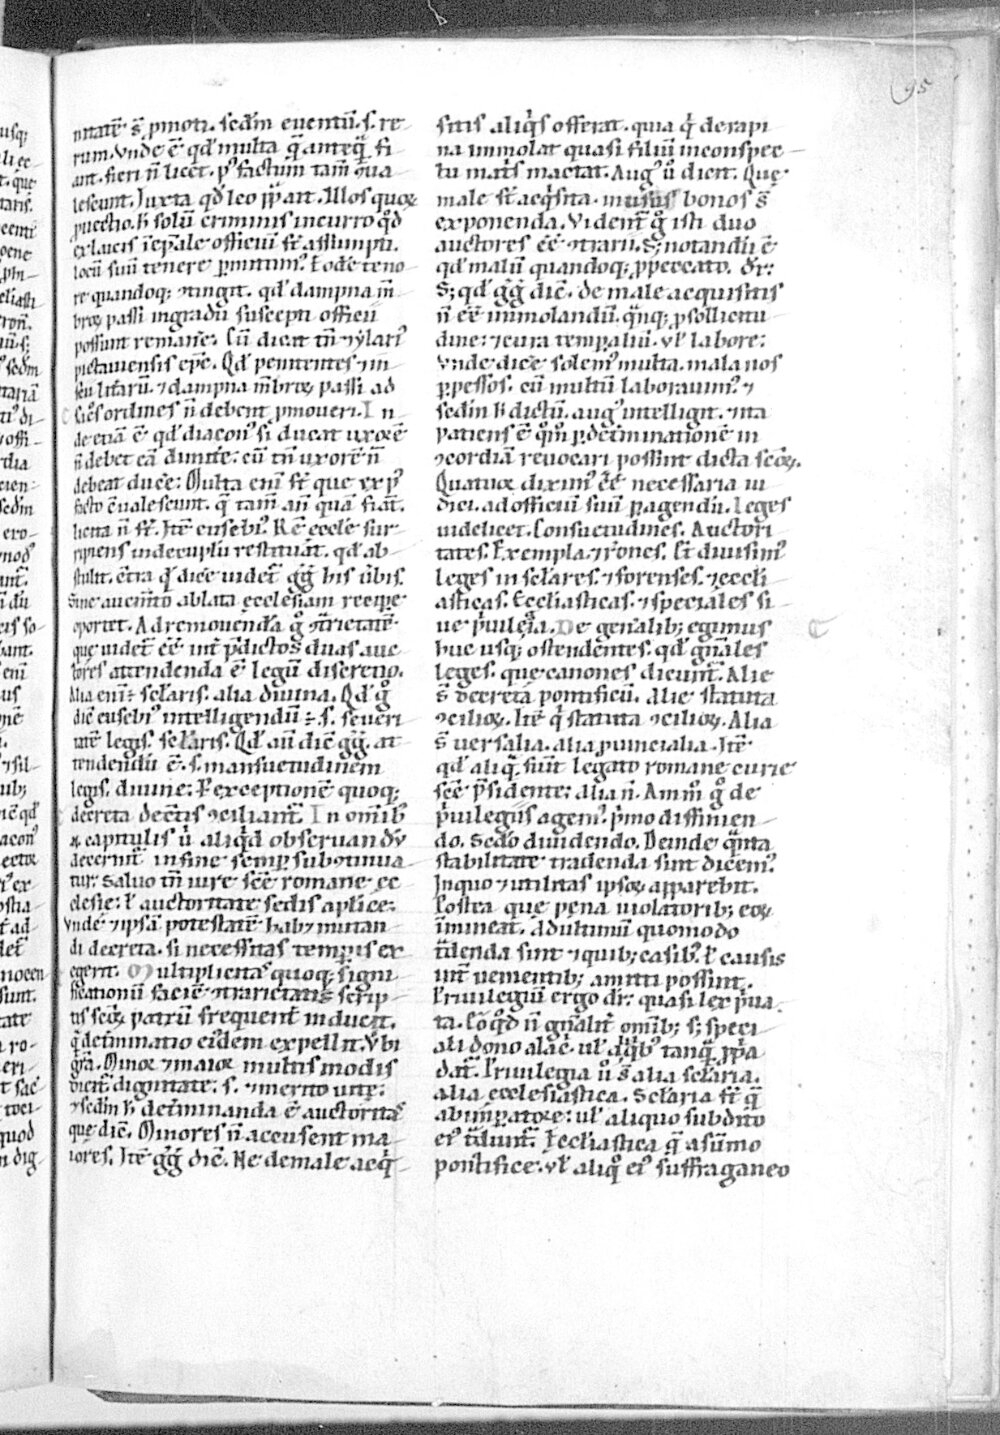 95
nitatē s̄ pmoti. sedm̄ euentū. s. re-
rum. Vnde ē qd̄ multa q̄ anteq̄ fi-
ant. fieri n̄ licet. p᷒ factum tam̄ ꝯua
lescunt. Iuxta qd̄ leo pp̄ ait. Illos quoꝝ
puectio. h̄ solū criminis incurro qd̄
ex laicis ī ep̄ale officiū st̄ assumpti.
locū suū tenere pmittim᷒. Eodē teno-
re quandoq; ꝯtingit. qd̄ dampna m̄-
broꝝ passi in gradū suscepti officii
possunt remanē. Cū dicat tn̄ hylari᷒
pictauiensis ep̄c. Qd̄ penitentes ⁊ in-
scii litt̄arū. ⁊ dampna m̄broꝝ passi ad
sac̄os ordines n̄ debent pmoueri. In-
de etiā ē qd̄ diacon᷒ si ducat uxorē
n̄ debet eā dimitt̄e. cū tn̄ uxorē n̄
debeat ducē. Multa enī st̄ que ex p᷒
facto ꝯualescunt. q̄ tam̄ an̄ quā fiāt.
licita n̄ st̄. Itē eusebi᷒. Rē ecclē sur-
ripiens in decuplū restituāt. qd̄ ab-
stulit. ꝯtra qd̄ dicē uidet̄ gḡ his ūbis.
Sine aucm̄to ablata ecclesiam recipe
oportet. Ad remouenda g̊ ꝯtrietatē.
que uidet̄ eē. int̄ p̄dictos duas auc-
tores attendenda ē legū discretio.
Alia enī ÷ sc̄laris. alia diuina. Qd̄ g̊
dic̄ eusebi᷒ intelligendū ÷. s. seueri
tatē legis. sc̄laris. Qd̄ au᷒ dic̄ gḡ. at-
tendendū ē. s. mansuetudinem
legis. diuine. Per exceptionē quoq;
decreta decretis ꝯciliant̄. In omīb᷒
⁊ capitulis ū aliqd̄ obseruandū
decernit̄. in fine semp subꝯtinua
tur. saluo tn̄ iure sc̄e romane ec
clesie. ł auctoritate sedis aplice.
Vnde ⁊ ipsā potestatē hab; mutan-
di decreta. si necessitas temp̄is ex
egerit. Multiplicitas quoq; signi-
ficationū faciē ꝯtrarietatis scrip-
tis sc̄oꝝ patrū frequent̄ inducit.
q̄ detminatio ei᷒dem expellit. Vbi
gr̄a. Minor ⁊ maior multis modis
dicit̄. dignitate. s. ⁊ merito uite.
⁊ sedm̄ h̄ det̄minanda ē auctoritas
que dic̄. Minores n̄ accusent ma-
iores. Itē gḡ dic̄. Ne de male acq̄-
sitis aliq̄s offerat. quia q̄ de rapi
na immolat quasi filiū in conspec-
tu mat̄s mactat. Aug᷒ ū dicit. Que
male st̄ acq̄sita. in usus bonos s̄
exponenda. Vident̄ g̊ isti duo
auctores eē ꝯtrarii. S; notandū ē
qd̄ malū quandoq; p peccato. dr̄.
S; qd̄ gḡ dic̄. de male acquisitis
n̄ eē immolandū. q̄nq; p sollicitu
dine. ⁊ cura temp̄aliū. ul̄ labore.
Vnde dicē solem᷒ multa. mala nos
ppessos. cū multū laborauim᷒. ⁊
sedm̄ h̄ dictū. aug᷒ intelligit. ⁊ ita
patiens ē q̊m̄ p det̄minationē in
ꝯcordiā reuocari possint dicta sc̄oꝝ.
Quatuor dixim᷒ eē necessaria iu
dici. ad officiū suū pagendū. Leges
uidelicet. Consuetudines. Auctori
tates. Exempla. ⁊ rōnes. Et diuisim᷒
leges in sc̄lares. ⁊ forenses. ⁊ eccli
asticas. Eccliasticas. ⁊ speciales si
ue p̄uilegia. De gen̄alib; egimus
huc usq; ostendentes. qd̄ gn̄ales
leges. que canones dicunt̄. Alie
s̄ decreta pontificū. Alie statuta
ꝯcilioꝝ. Itē q̄ statuta ꝯcilioꝝ. Alia
s̄ uersalia. alia puincialia. Itē
qd̄ aliq̄ fiūt legato romane curie
sc̄e p̄sidente. alia n̄. Amm̊ g̊ de
p̄uilegiis agem᷒. p̄mo diffinien-
do. Scdo diuidendo. Deinde q̄nta
stabilitate tradenda sint dicem᷒.
In quo ⁊ utilitas ipsoꝝ apparebit.
Postea que pena uiolatorib; eoꝝ
īmineat. Ad ultimū quomodo
t̄denda sint ⁊ quib; casib᷒ ł causis
int̄ uenientib; amitti possint.
Priuilegiū ergo dr̄. quasi lex p̄ua
ta. Eo qd̄ n̄ gn̄alit̄ omīb; s; speci
ali dono alac̄. ul̄ aq̄b᷒ tanq̄ pp̄a
dat̄. Priuilegia ū s̄ alia sc̄laria.
alia ecclesiastica. Sc̄laria st̄ q̄
ab imp̄atore. ul̄ aliquo subdito
ei᷒ t̄dunt̄. Eccliastica q̄ a sūmo
pontifice. ul̄ aliq̊ ei᷒ suffraganeo